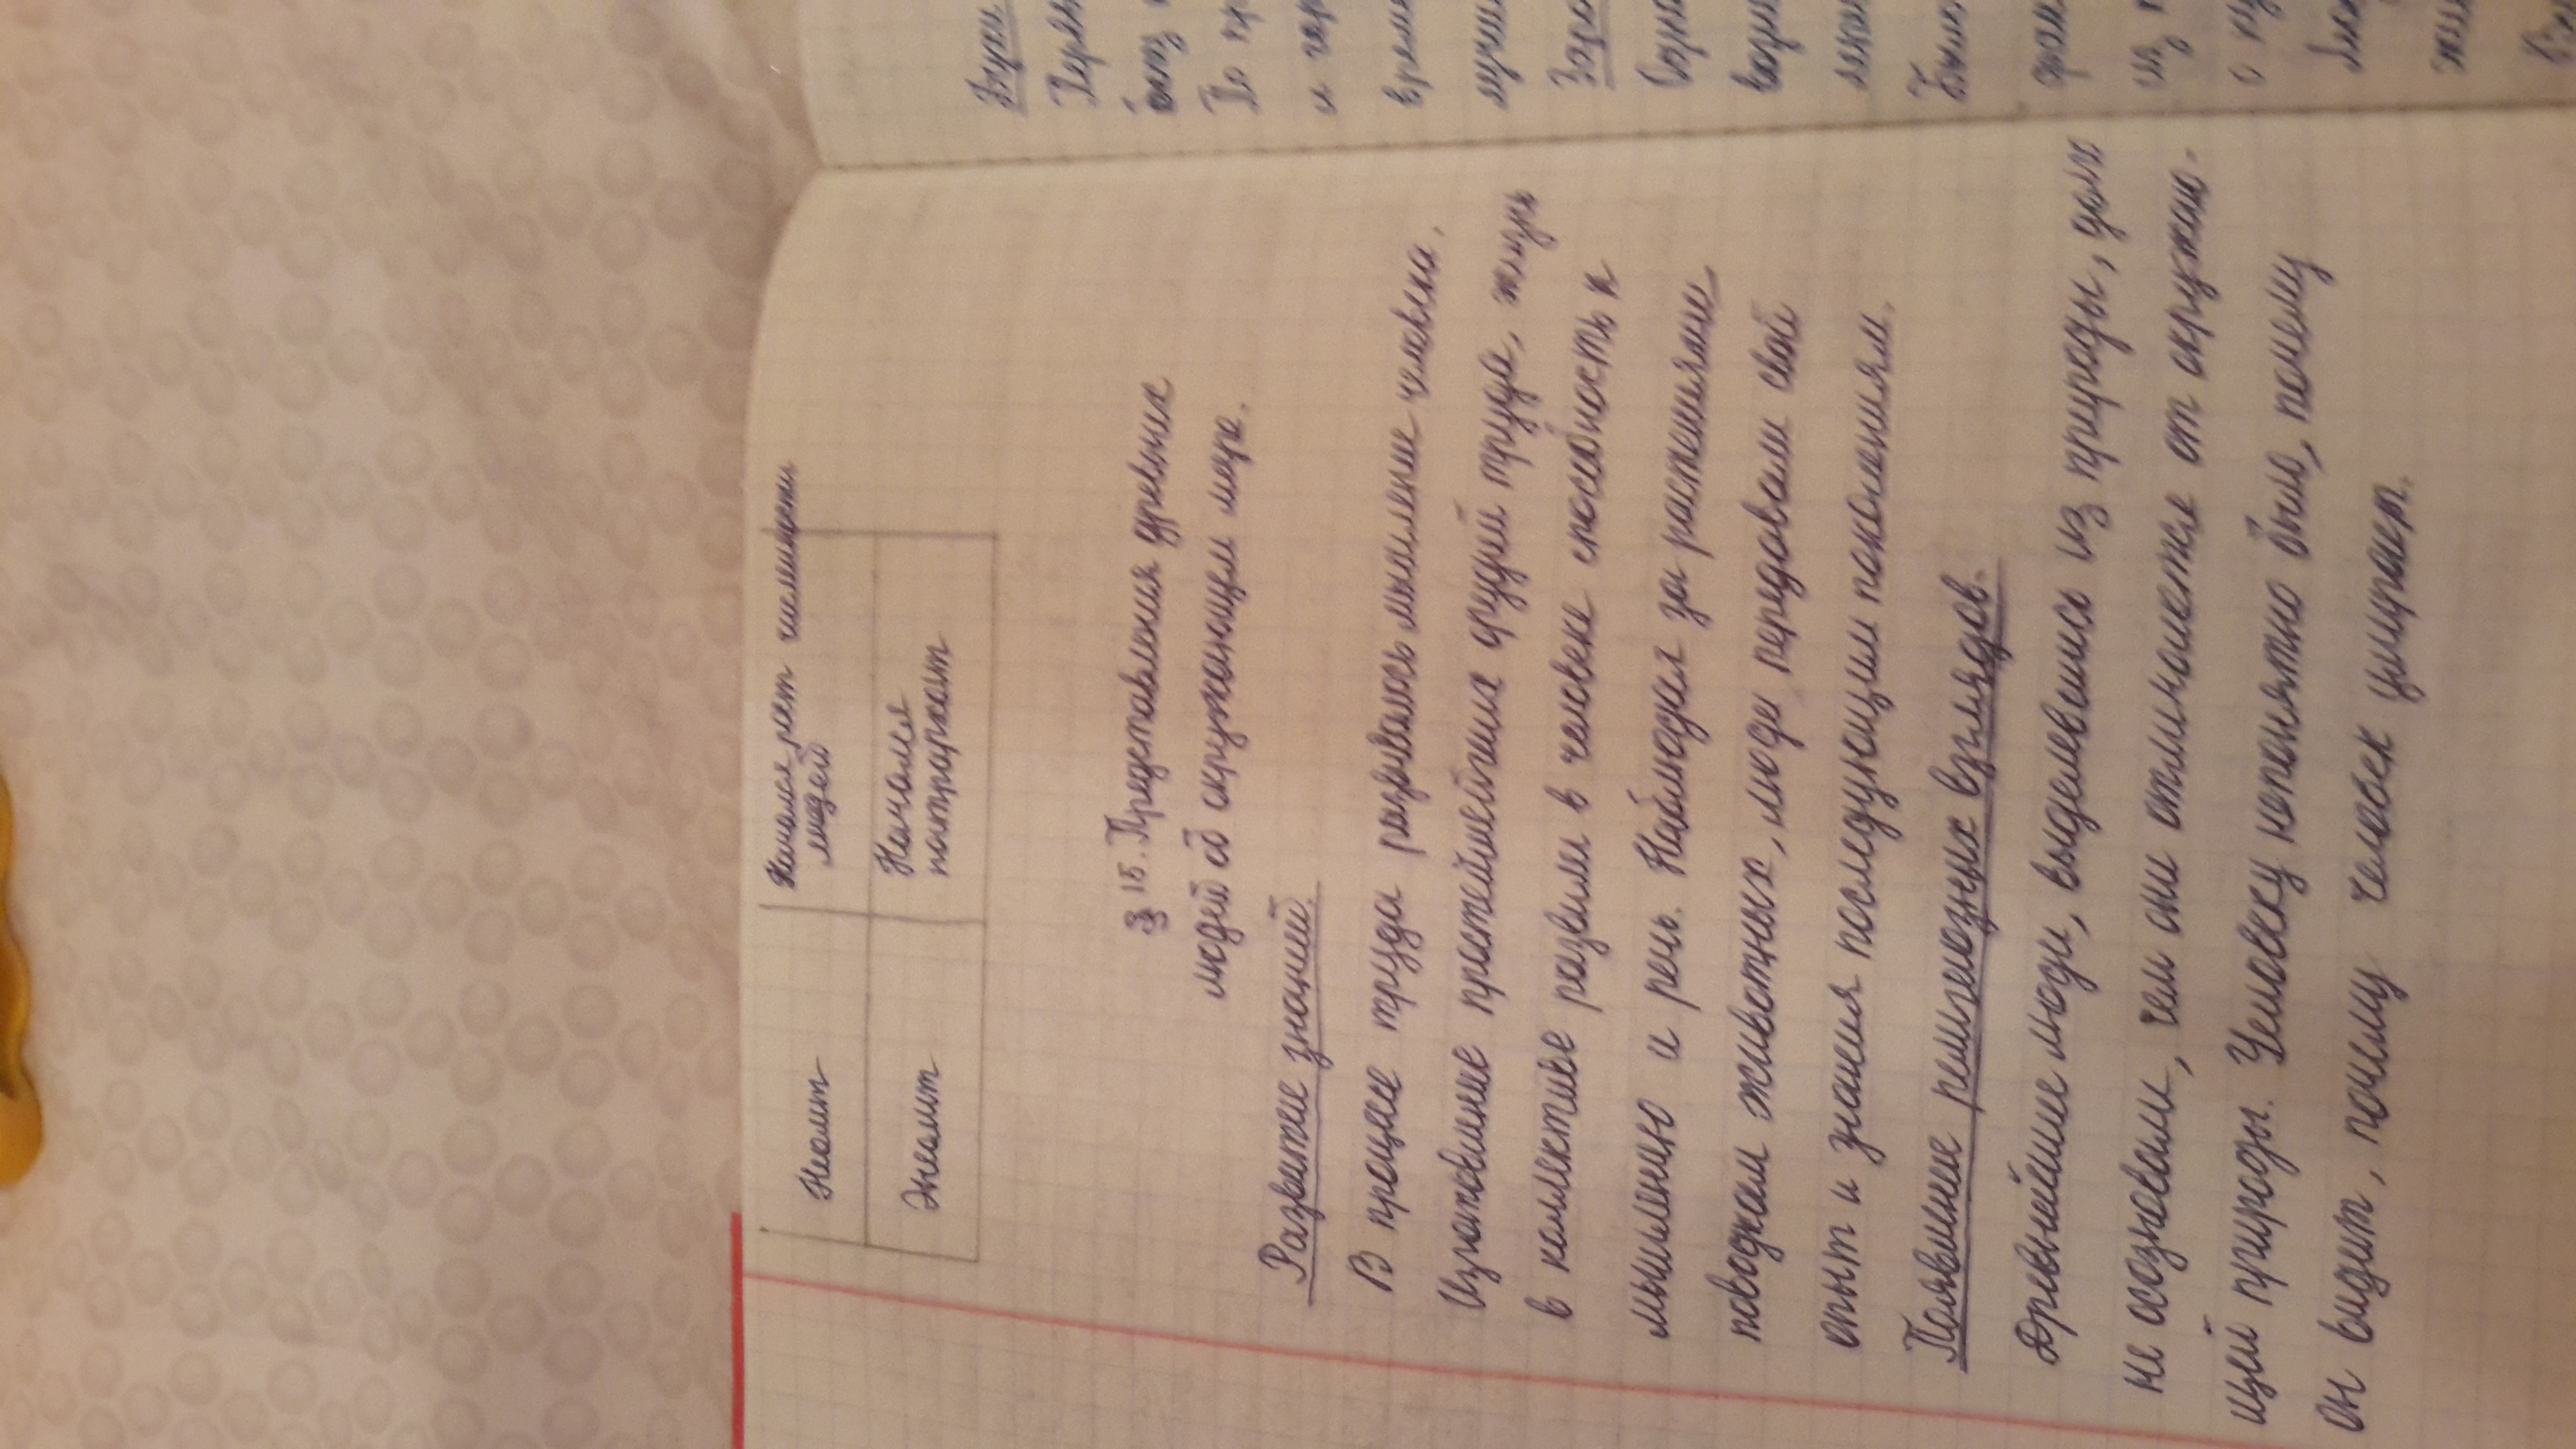 Неолит
Начался рост численности
людей
Энеолит
Начался
патриархат
§ 15. Представления древних
людей об окружающем мире.
Развитие знаний.
В процессе труда развивалось мышление человека.
Изготовление простейших орудий труда, жизнь
в коллективе развили в человеке способность к
мышлению и речь. Наблюдая за растениями
поводками животных, люди передавали свой
опыт и знания последующим поколениям.
Появление религиозных взглядов.
Древнейшие люди, выделевшись из природы, долх
не осозновали, чем они отличаются от окружаю-
щей природы. Человеку непонятно было, почему
он видит, почему человек умирает.
Перв
По пр
и гор
време